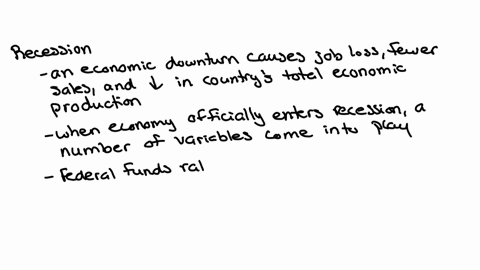 Recession
- an economic downturn causes job loss, fewer
sales, and ↓ in country's total economic
production
- when economy officially enters recession, a
number of variables come into play
- federal funds rat